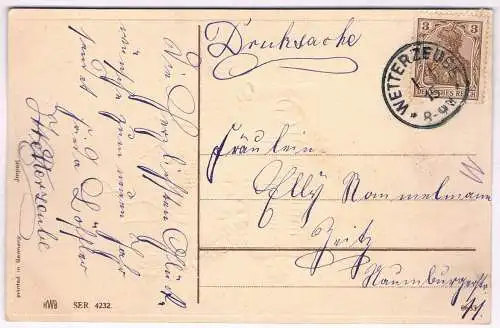 Drucksache
3
DEUTSCHES REICH
WETTERZEUBE
8-9V
Fräulein
Elly Rommelmann
Zeitz
Naumburgerstr.
11.
11
Die Herzlichsten Glück-
wünsche zum neuen Jahr
sendet
Frieda Löffler
Wetterzeube
printed in Germany
HWB SER 4232.